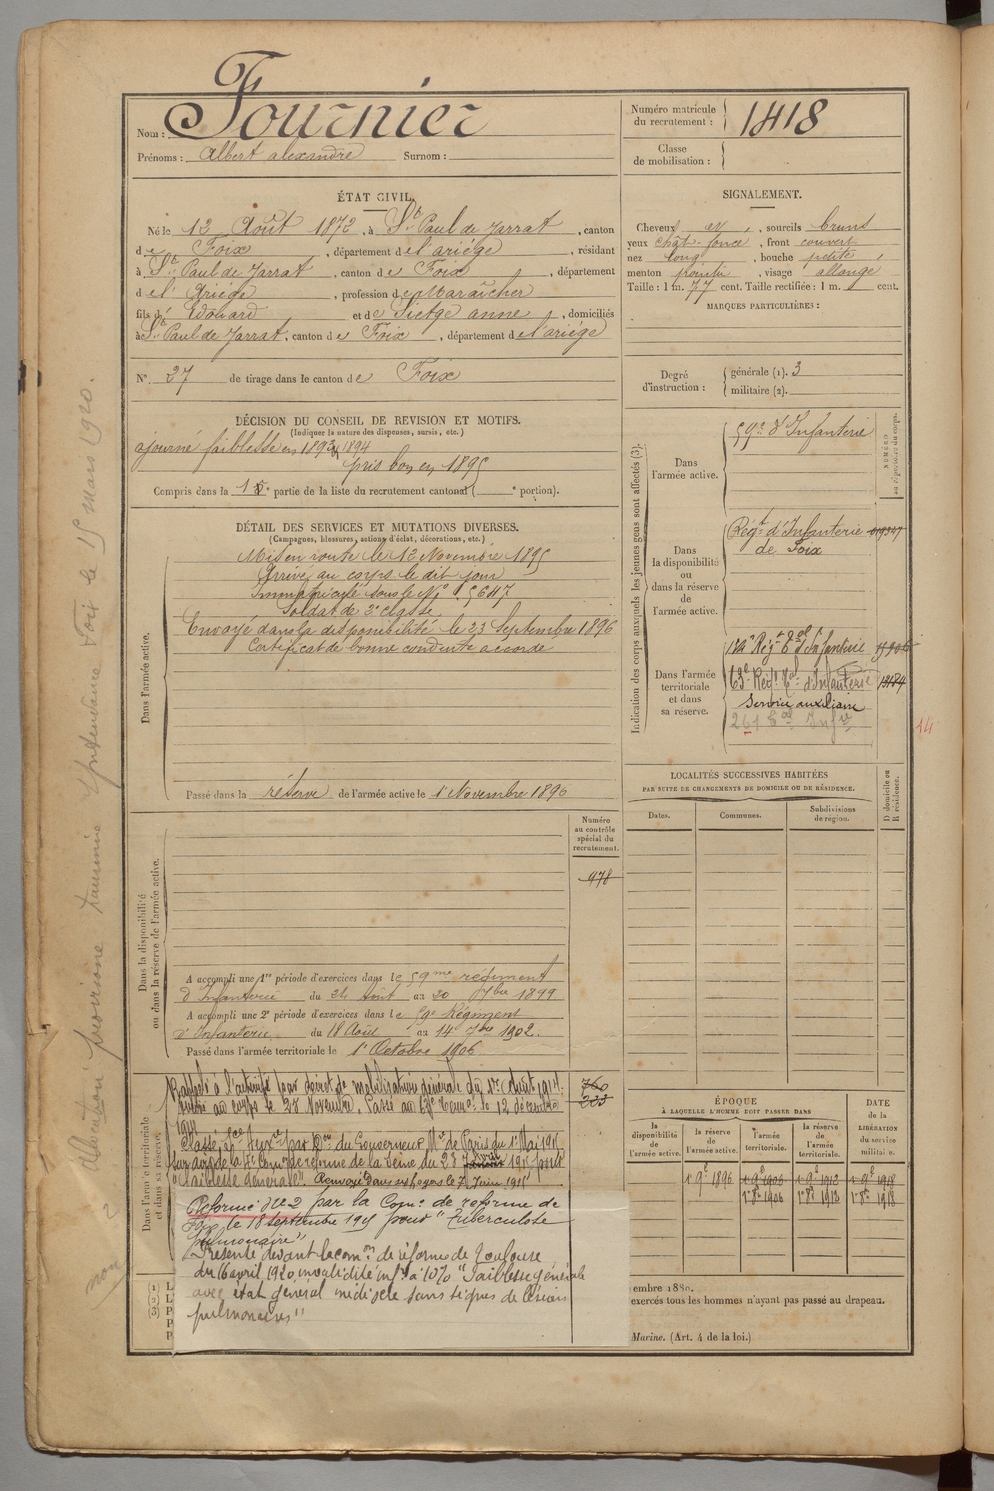 Nom : Fournier
Prénoms : Albert alexandre Surnom :
Numéro matricule du recrutement : 1418
Classe de mobilisation :
ÉTAT CIVIL.
Né le 12 Août 1872, à St Paul de Jarrat, canton
de Foix, département de l'ariége, résidant
à St Paul de Jarrat, canton de Foix, département
de l'Ariége, profession de Maraîcher
fils d'Edouard et de Sietge anne, domiciliés
à St Paul de Jarrat, canton de Foix, département de l'ariége
N° 27 de tirage dans le canton de Foix
SIGNALEMENT.
Cheveux et, sourcils bruns
yeux chât. foncé, front couvert
nez long, bouche petite,
menton pointu, visage allongé
Taille : 1 m. 77 cent. Taille rectifiée : 1 m. cent.
MARQUES PARTICULIÈRES :
Degré d'instruction : générale (1). 3
militaire (2).
DÉCISION DU CONSEIL DE REVISION ET MOTIFS.
(Indiquer la nature des dispenses, sursis, etc.)
ajourné faiblesse en 1893 et 1894
pris bon en 1895
Compris dans la 1e partie de la liste du recrutement cantonal ( e portion).
DÉTAIL DES SERVICES ET MUTATIONS DIVERSES.
(Campagnes, blessures, actions d'éclat, décorations, etc.)
Dans l'armée active.
Mis en route le 12 Novembre 1895
Arrivé au corps le dit jour
Immatriculé sous le N° 5647
Soldat de 2e classe
Envoyé dans la disponibilité le 23 Septembre 1896
Certificat de bonne conduite accordé
Passé dans la réserve de l'armée active le 1 Novembre 1896
Indication des corps auxquels les jeunes gens sont affectés (3).
NUMÉRO au répertoire du corps.
Dans l'armée active.
59e d'Infanterie
Dans la disponibilité ou dans la réserve de l'armée active.
Régt d'Infanterie
de Foix
Dans l'armée territoriale et dans sa réserve.
Régt d'Infanterie
63e Régt d'Infanterie
Service auxiliaire
261
44
LOCALITÉS SUCCESSIVES HABITÉES
PAR SUITE DE CHANGEMENTS DE DOMICILE OU DE RÉSIDENCE.
Dates.
Communes.
Subdivisions de région.
D domicile ou R résidence.
Numéro au contrôle spécial du recrutement.
978
Dans la disponibilité ou dans la réserve de l'armée active.
A accompli une 1re période d'exercices dans le 59me régiment
d'Infanterie du 24 Août au 20 7bre 1899
A accompli une 2e période d'exercices dans le 59e Régiment
d'Infanterie du 18 Août au 14 7bre 1902.
Passé dans l'armée territoriale le 1er Octobre 1906
Dans l'armée territoriale et dans sa réserve.
Rappelé à l'activité par décret de mobilisation générale du 1er Août 1914.
Arrivé au corps le 27 Novembre. Passé au le 12 décembre
1914
Classé par Don du Gouverneur Mre de Paris du 1er Mai 1915
sur avis de la Come de réforme de la Seine du 23 avril 1915 pour
"faiblesse générale" Renvoyé dans ses foyers le 7 Juin 1915
Réformé N° 2 par la Come de réforme de
Foix le 18 septembre 1915 pour "Tuberculose
Pulmonaire"
Présenté devant la comon de réforme de Toulouse
du 16 avril 1920 invalidité infre à 10% "Faiblesse générale
avec état général médiocre sans signes de lésions
pulmonaires"
760
203
ÉPOQUE
À LAQUELLE L'HOMME DOIT PASSER DANS
la disponibilité de l'armée active.
la réserve de l'armée active.
l'armée territoriale.
la réserve de l'armée territoriale.
DATE de la LIBÉRATION du service militaire.
1 9e 1896
1 9e 1906
1 9e 1912
1 9e 1918
1 8e 1906
1 8e 1912
1 8e 1918
(1) L
(2) L
(3) P
P
P
embre 1880.
exercés tous les hommes n'ayant pas passé au drapeau.
Marine. (Art. 4 de la loi.)
Allocation provisoire Intendance Foix le 15 mars 1920.